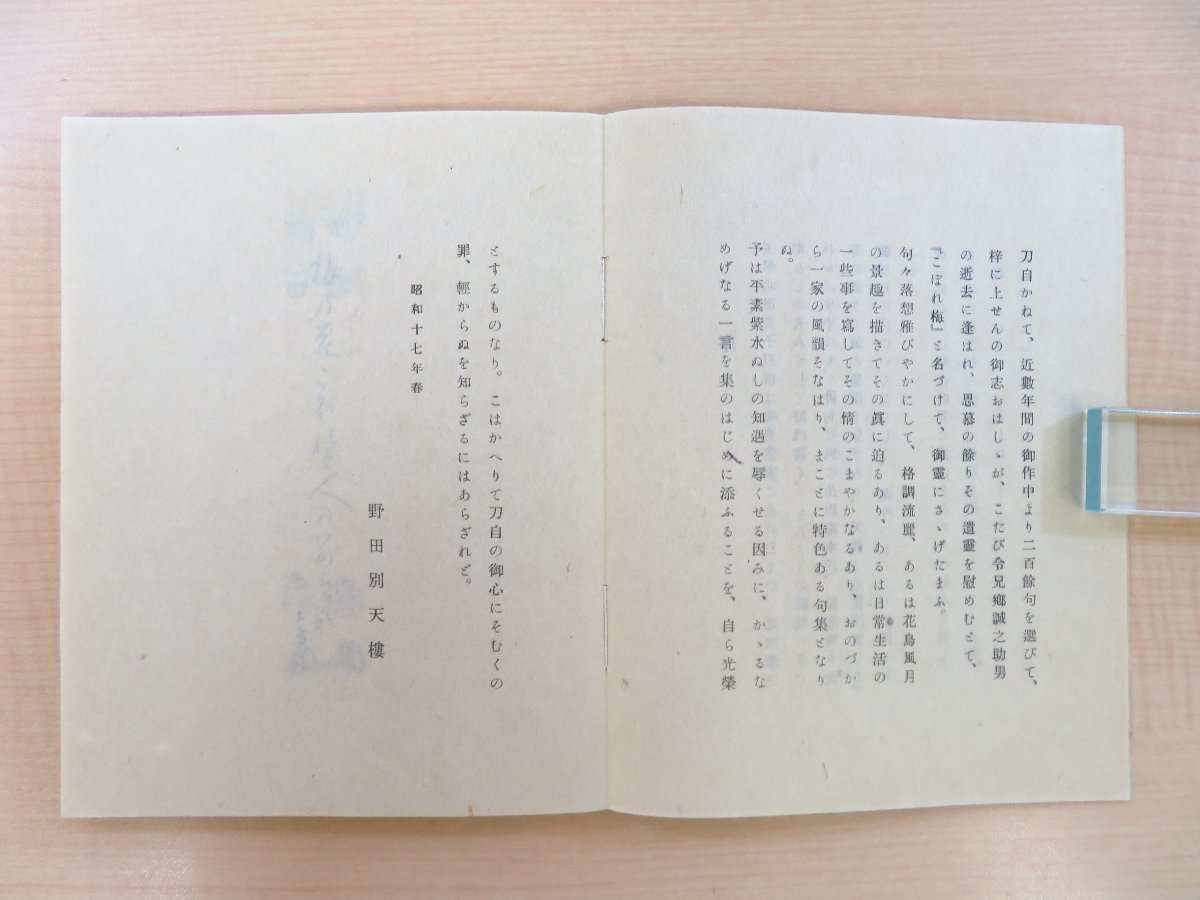 刀自かねて、近數年間の御作中より二百餘句を選びて、
梓に上せんの御志おはしゝが、こたび令兄郷誠之助男
の逝去に逢はれ、思慕の餘りその遺靈を慰めむとて、
『こぼれ梅』と名づけて、御靈にさゝげたまふ。
句々落想雅びやかにして、格調流麗、あるは花鳥風月
の景趣を描きてその眞に迫るあり、あるは日常生活の
一些事を寫してその情のこまやかなるあり、おのづか
ら一家の風韻そなはり、まことに特色ある句集となり
ぬ。
予は平素紫水ぬしの知遇を辱くせる因みに、かゝるな
めげなる一言を集のはじめに添ふることを、自ら光榮
とするものなり。こはかへりて刀自の御心にそむくの
罪、輕からぬを知らざるにはあらざれど。
昭和十七年春
野田別天樓